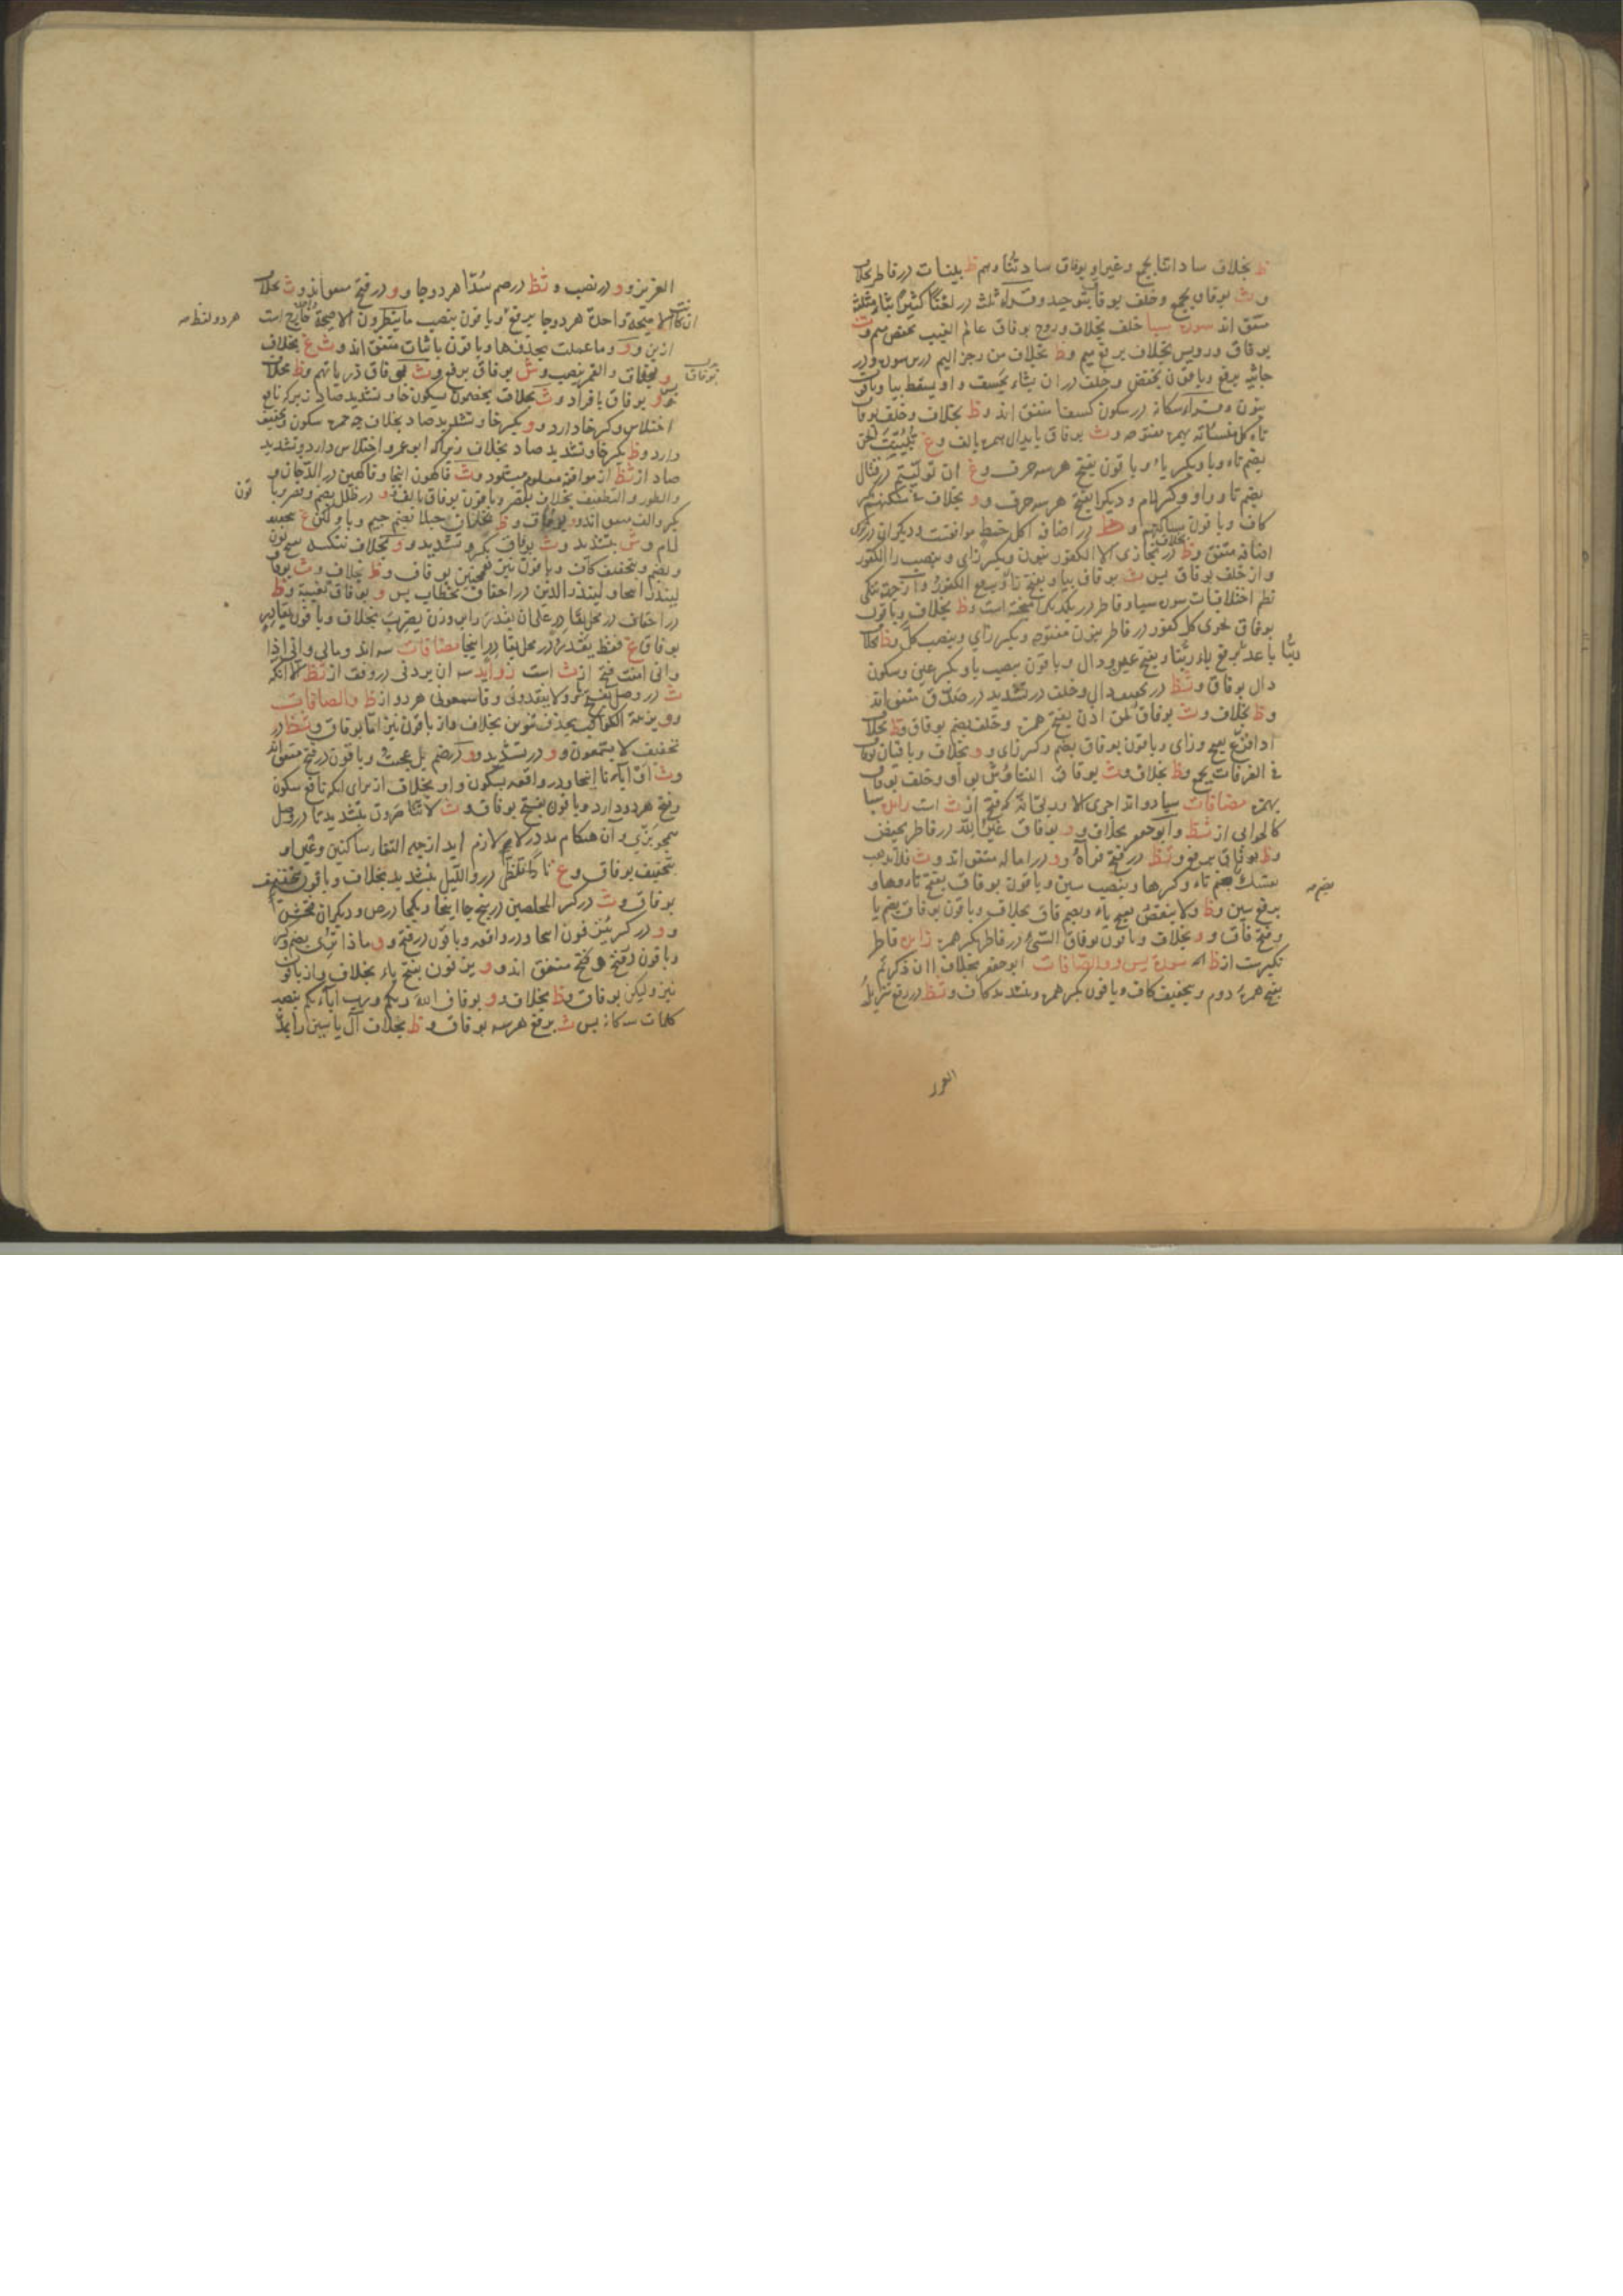 ظ بخلاف ساداتنا بجمع وغیر او بوفاق سادتنا وهم ظ بینات در فاطر بخلاف
و ث بوفاق بجمع وخلف بوفاق بتوحید و قراء ثلث در لعنا کثیرا بثاء مثلث
متفق اند سورة سبا خلف بخلاف وروح بوفاق عالم الغیب بخفض میم و ث
بوفاق ورویس بخلاف برفع میم و ظ بخلاف من رجز الیم درین سوره و در
جاثیه برفع وباقون بخفض وخلف در ان یشاء یخسف و او یسقط بیا وباقون
بنون و قراء سکانه در سکون کسفا متفق اند و ظ بخلاف وخلف بوفاق
تاکل منساته بهمزه مفتوحه و ث بوفاق بابدال همزه بالف و غ تبینت الجن
بضم تاء وبا وبکسر یاء وباقون بفتح هر سه حرف و غ ان تولیتم در قتال
بضم تا و واو وکسر لام و دیکرا بفتح هر سه حرف و و بخلاف مسکنهم بکسر
کاف وباقون در اضافه اکل خمط موافقست و دیکران در ترک
اضافه متفق و ظ در نجازی الا الکفور بنون وبکسر زای و بنصب را الکفور
و از خلف بوفاق پس ث بوفاق بیا وبفتح زا وبرفع الکفور و از جهة تنکی
نظم اختلافات سورة سبا و فاطر در یکدیکر است و ظ بخلاف وباقون
بوفاق نجزی کل کفور در فاطر بنون مفتوحه وبکسر زای وبنصب کل و ظ بخلاف
ربنا باعد برفع باء ربنا وبفتح عین ودال وباقون بنصب با وبکسر عین وسکون
دال بوفاق و ثظ در تخفیف دال وخلف در تشدید در صدق متفق اند
و ظ بخلاف و ث بوفاق لمن اذن بفتح همزه وخلف بضم بوفاق و ظ بخلاف
اذا فزع بفتح وزای وباقون بوفاق بضم وکسر زای و و بخلاف وباقیان بوفاق
فی الغرفات بجمع و ظ بخلاف و ث بوفاق التناوش بواو وخلف بوفاق
بهمزه مضافات سبا دو اند اجری الا و ربی انه که فتح از ث است زاید سبا
کالجوابی از ثظ و ابو جعفر بخلاف و و بوفاق غیر الله در فاطر بخفض
و ظ بوفاق برفع و ثظ در فتح فراه و و در اماله متفق اند و ث فلا تذهب
نفسک بضم تاء وکسر ها وبنصب سین وباقون بوفاق بفتح تاء وها و
برفع سین و ظ ولا ینقص بفتح یاء وبضم قاف بخلاف وباقون بوفاق بضم یا
وفتح قاف و و بخلاف وباقون بوفاق السیئ در فاطر بکسر همزه زاید فاطر
نکیرست از ظ سورة یس و والصافات ابو جعفر بخلاف اان ذکرتم
بفتح همزه دوم وبتخفیف کاف وباقون بکسر همزه وبتشدید کاف و ثظ در رفع تنزیل
العزیز
العزیز و و در نصب و ثظ در ضم سدا هر دو جا و و در فتح متفق اند و ث بخلاف
ان کانت الا صیحة واحدة هر دو جا برفع وباقون بنصب ما ینظرون الا صیحة خارج است
هر دو لفظ
ازین و و وما عملت بحذف ها وباقون باثبات متفق اند و ث غ بخلاف
بوفاق
و بخلاف والقمر بنصب و ش بوفاق برفع و ث بوفاق ذریاتهم و ظ بخلاف
و بوفاق بافراد و ث بخلاف یخصمون بسکون خا وتشدید صاد زیرکه نافع
اختلاس وکسر خا دارد و و بکسر خا وتشدید صاد بخلاف چه حمزه سکون وتخفیف
دارد و ظ بکسر خا وتشدید صاد بخلاف زیراکه ابو عمرو اختلاس دارد وتشدید
صاد از ثظ از موافقه معلوم میشود و ث فاکهون اینجا وفاکهین در الدخان و
والطور والتطفیف بخلاف بقصر وباقون بوفاق بالف و و در ظلل بضم وقصر وبا
قون
بکسر والف متفق اند و بوفاق و ظ بخلاف جبلا بضم جیم وبا ولکن غ بتخفیف
لام و ش بتشدید و ث بوفاق بکسر وتشدید و و بخلاف ننکسه بفتح نون
وبضم وبتخفیف کاف وباقون نیز همچنین بوفاق و ظ بخلاف و ث بوفاق
لینذر اینجا ولینذر الذین در احقاف بخطاب پس و بوفاق بغیبة و ظ
در احقاف در محل بقادر علی ان یقدر بخلاف وباقون بقادر
بوفاق غ فقط یقدر در محل بقادر اینجا مضافات سه اند ومالی وانی اذا
وانی امنت فتح از ث است زواید سه ان یردنی در وقف از ثظ الا انکه
ث در وصل بفتح ولا ینقذونی وفاسمعونی هر دو از ظ والصافات
و و بزینة الکواکب بحذف تنوین بخلاف واز باقون نیز اما بوفاق و ثظ در
تخفیف لا یسمعون و و در تشدید و و در ضم بل عجبت وباقون در فتح متفق اند
و ث او آباؤنا اینجا و در واقعه بسکون واو بخلاف از برای انکه نافع سکون
وفتح هر دو دارد وباقون بفتح بوفاق و ث لا تناصرون بتشدید تا در وصل
همچو بزی و آن هنکام مد در لا لازم اید از جهة التقاء ساکنین وغیر او
بتخفیف بوفاق و غ نارا تلظی در واللیل بتشدید بخلاف وباقون بتخفیف
بوفاق و ث در کسر المخلصین در پنج جا اینجا ویکجا در ص و دیکران
و و در کسر ینزفون اینجا و در واقعه وباقون در فتح و و ماذا تری بضم وکسر
وباقون در فتح و فتح متفق اند و و یزفون بفتح یاء بخلاف واز باقون
نیز ولیکن بوفاق و ظ بخلاف و و بوفاق الله ربکم ورب آبائکم بنصب
کلمات سه کانه پس ث برفع هر سه بوفاق و ظ بخلاف آل یاسین زاید